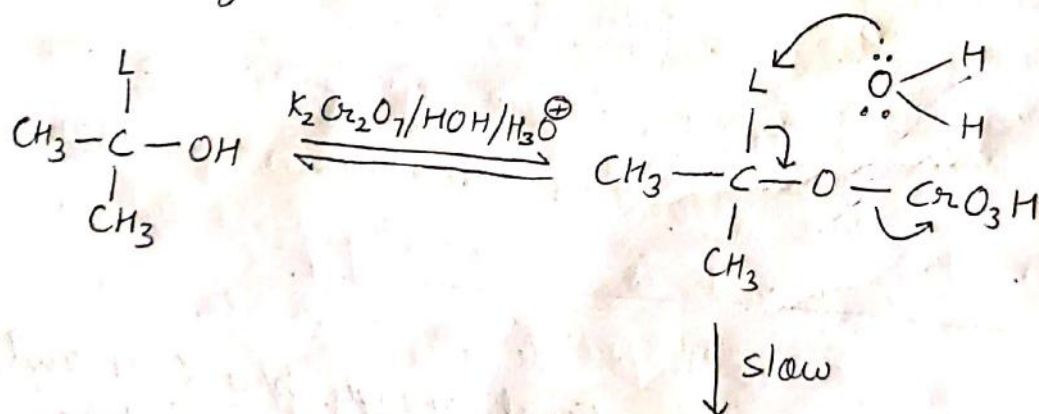 L
CH₃ — C — OH
CH₃
K₂Cr₂O₇/HOH/H₃O⊕
L
O
H
H
CH₃ — C — O — CrO₃H
CH₃
slow